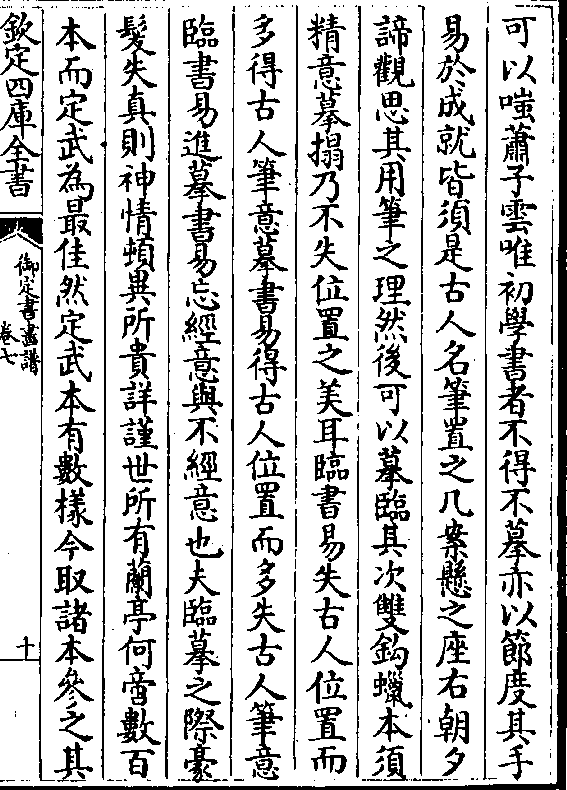 可以嗤蕭子雲唯初學書者不得不摹亦以節度其手
易於成就皆須是古人名筆置之几案懸之座右朝夕
諦觀思其用筆之理然後可以摹臨其次雙鈎蠟本須
精意摹搨乃不失位置之美耳臨書易失古人位置而
多得古人筆意摹書易得古人位置而多失古人筆意
臨書易進摹書易忘經意與不經意也夫臨摹之際豪
髮失真則神情頓異所貴詳謹世所有蘭亭何啻數百
本而定武為最佳然定武本有數樣今取諸本參之其
欽定四庫全書
御定書畫譜
卷七
十